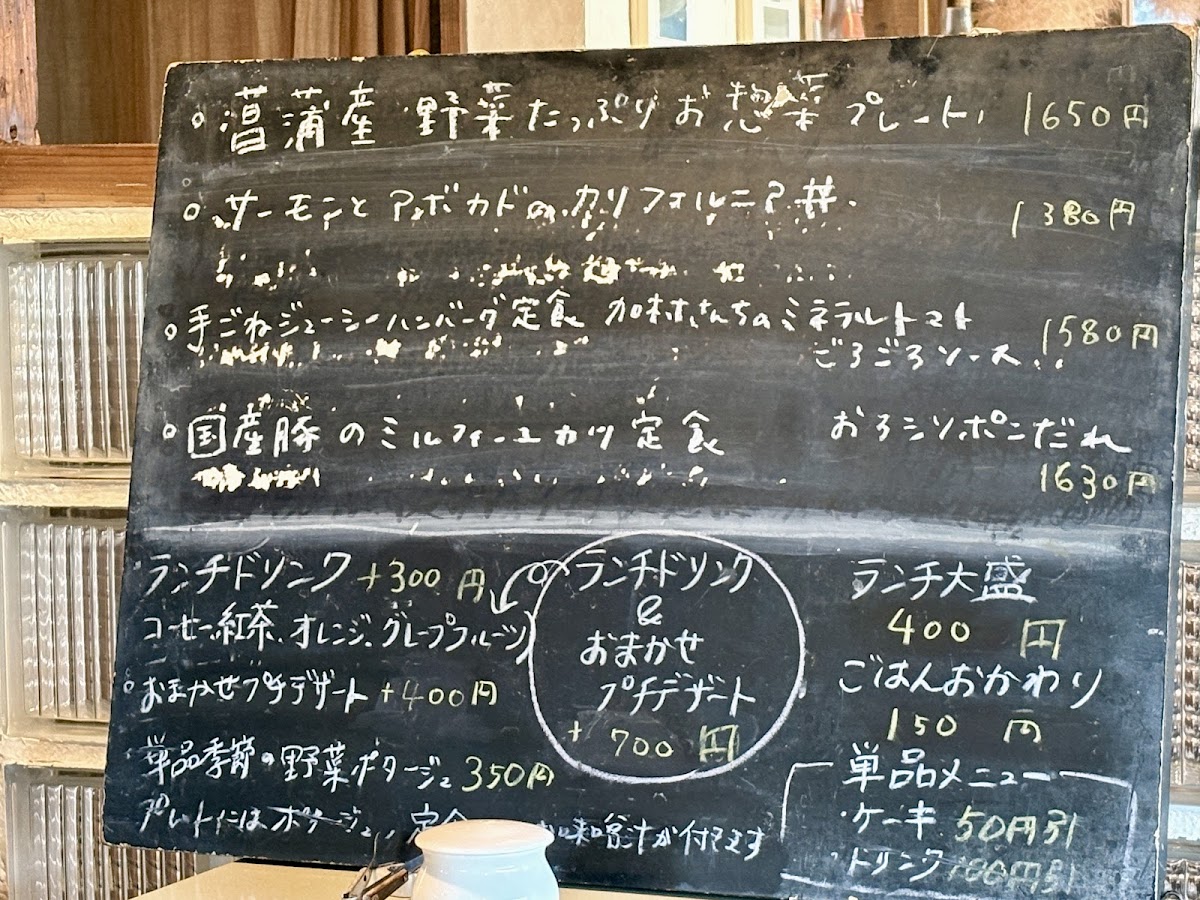 ○菖蒲産 野菜たっぷりお惣菜プレート 1650円
○サーモンとアボカドのカリフォルニア丼 1380円
○手ごねジューシーハンバーグ定食 加村さんちのミネラルトマト
ごろごろソース 1580円
○国産豚のミルフィーユカツ定食 おろシソポンだれ
1630円
ランチドリンク +300円
コーヒー、紅茶、オレンジ、グレープフルーツ
○おまかせプチデザート +400円
単品季節の野菜ポタージュ 350円
プレートにはポタージュ、定食 味噌汁が付きます
ランチドリンク
&
おまかせ
プチデザート
+700円
ランチ大盛
400円
ごはんおかわり
150円
単品メニュー
・ケーキ 50円引
・ドリンク 100円引